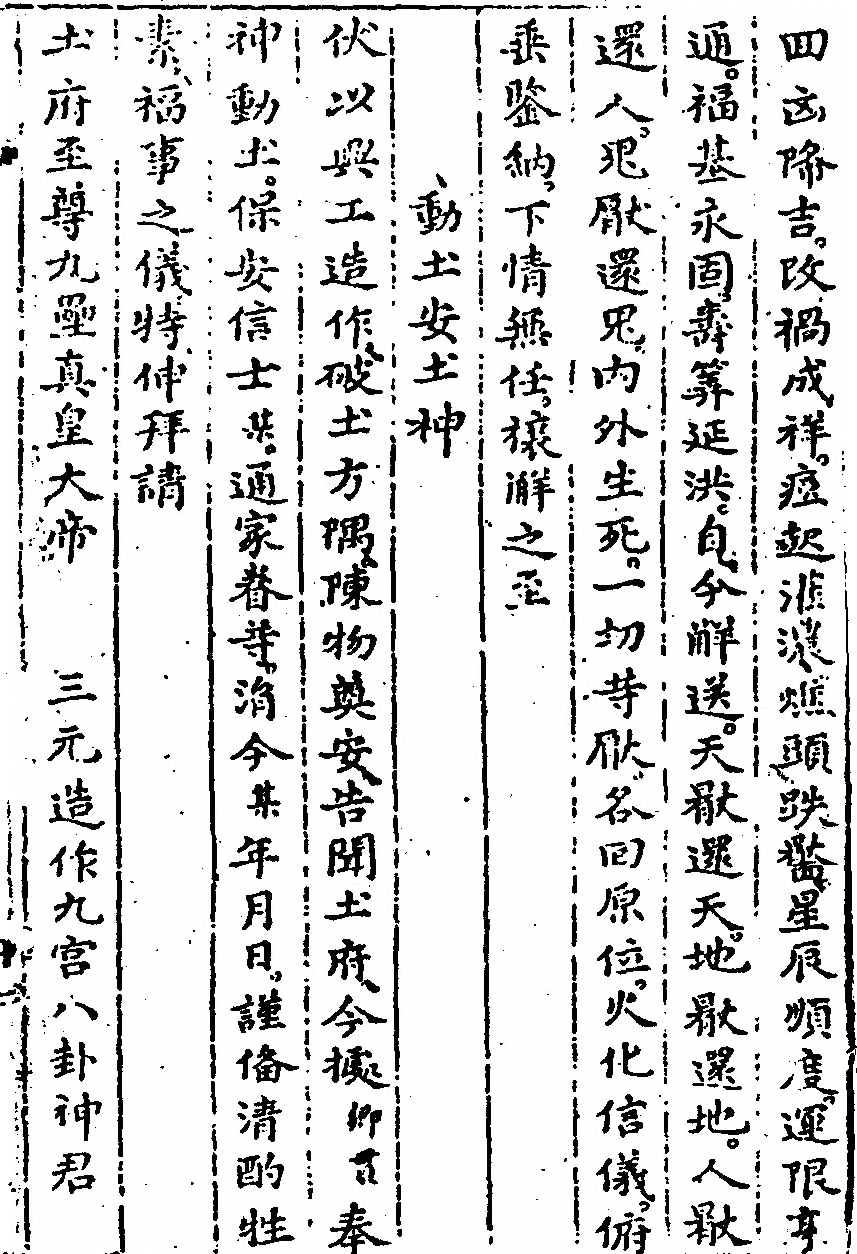 四凶降吉。改禍成祥。痘起漼漒、爑頭跌斃。星辰順度。運限亨
通。福基永固。壽筭延洪。自今解送。天厭還天。地厭還地。人厭
還人。鬼厭還鬼。内外生死。一切等厭。各囘原位。火化信儀。俯
垂鑒納。下情無任。禳解之至
動土安土神
伏以興工造作、破土方隅、陳物奠安、告聞土府、今據鄉貫奉
神動土。保安信士某。通家眷等、涓今某年月日。謹俻清酌牲
素、福事之儀、特伸拜請
土府至尊九壘真皇大帝 三元造作九宫八卦神君